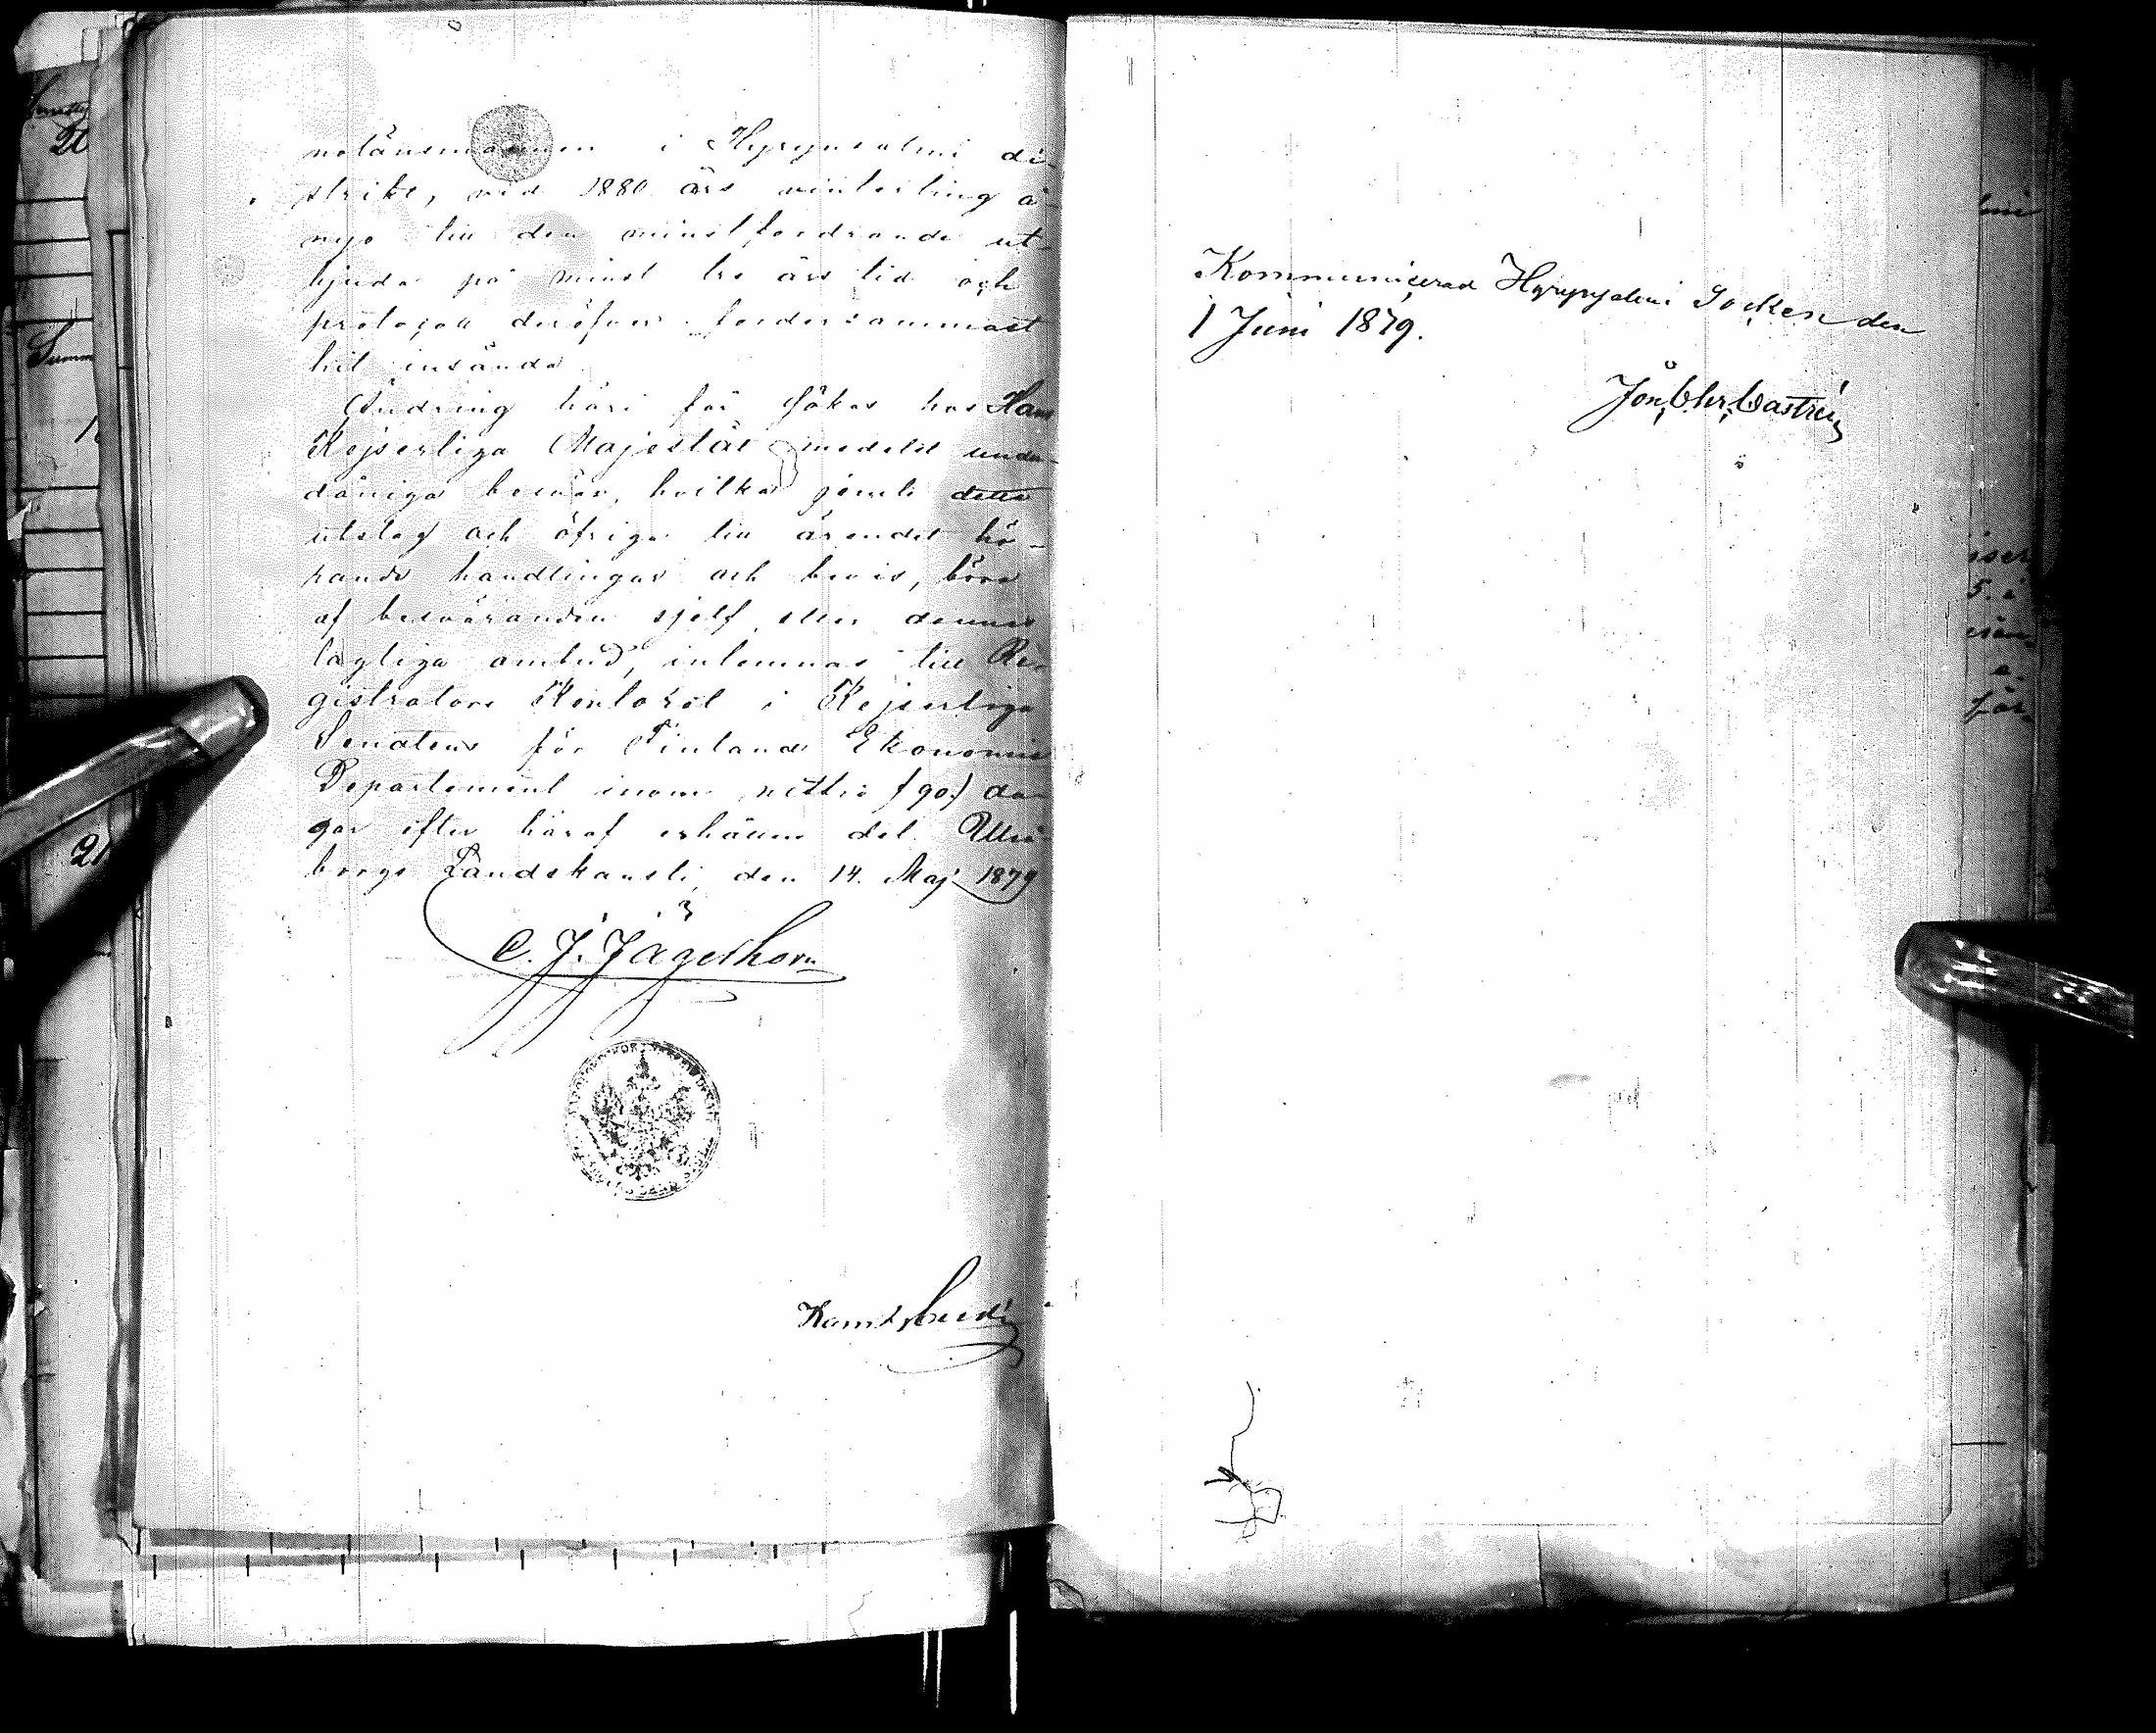 nolänsmannen i Hyrynsalmi di-
strikt, vid 1880 års vinterting å
nyo till den minstfordrande ut-
bjuda på minst tre års tid och
protokoll deröfver fordersammast
hit insända.
Ändring häri får sökas hos Hans
Kejserliga Majestät medelst under-
dåniga besvär, hvilka jemte detta
utslag och öfriga till ärendet hö-
rande handlingar och bevis, böra
af besväranden sjelf eller dennes
lagliga ombud, inlemnas till Re-
gistrators Kontoret i Kejserliga
Senatens för Finland Ekonomie
Departement inom nittio (90) da-
gar efter häraf erhållne del. Uleå-
borgs Landskansli, den 14. Maj 1879
C. J. Jägerhorn
Kommunicerad Hyrynsalmi Socken den
1 Juni 1879.
Jon. Chr. Castrén